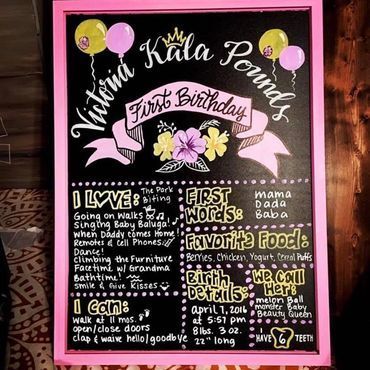 Victoria Kala Pounds
First Birthday
I LOVE: The Park
Biting
Going on Walks
Singing Baby Baluga!
When Daddy comes Home!
Remotes & Cell Phones!
Dance!
Climbing the Furniture
Facetime w/ Grandma
Bathtime!
Smile & Give Kisses
I can:
walk at 11 mos.
open/close doors
clap & waive hello/goodbye
FIRST
Words:
mama
Dada
Baba
Favorite Food:
Berries, Chicken, Yogurt, Cereal Puffs
Birth
Details:
April 7, 2016
at 5:57 pm
8 lbs. 3 oz.
22" long
WE CALL
Her:
melon Ball
monster Baby
Beauty Queen
I
HAVE 6 TEETH